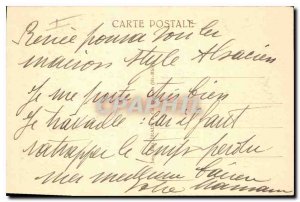 CARTE POSTALE
Renée pourra voir les
maisons style Alsacien
Je me porte très bien
Je travaille car il faut
rattrapper le temps perdu
mes meilleurs
Votre Maman